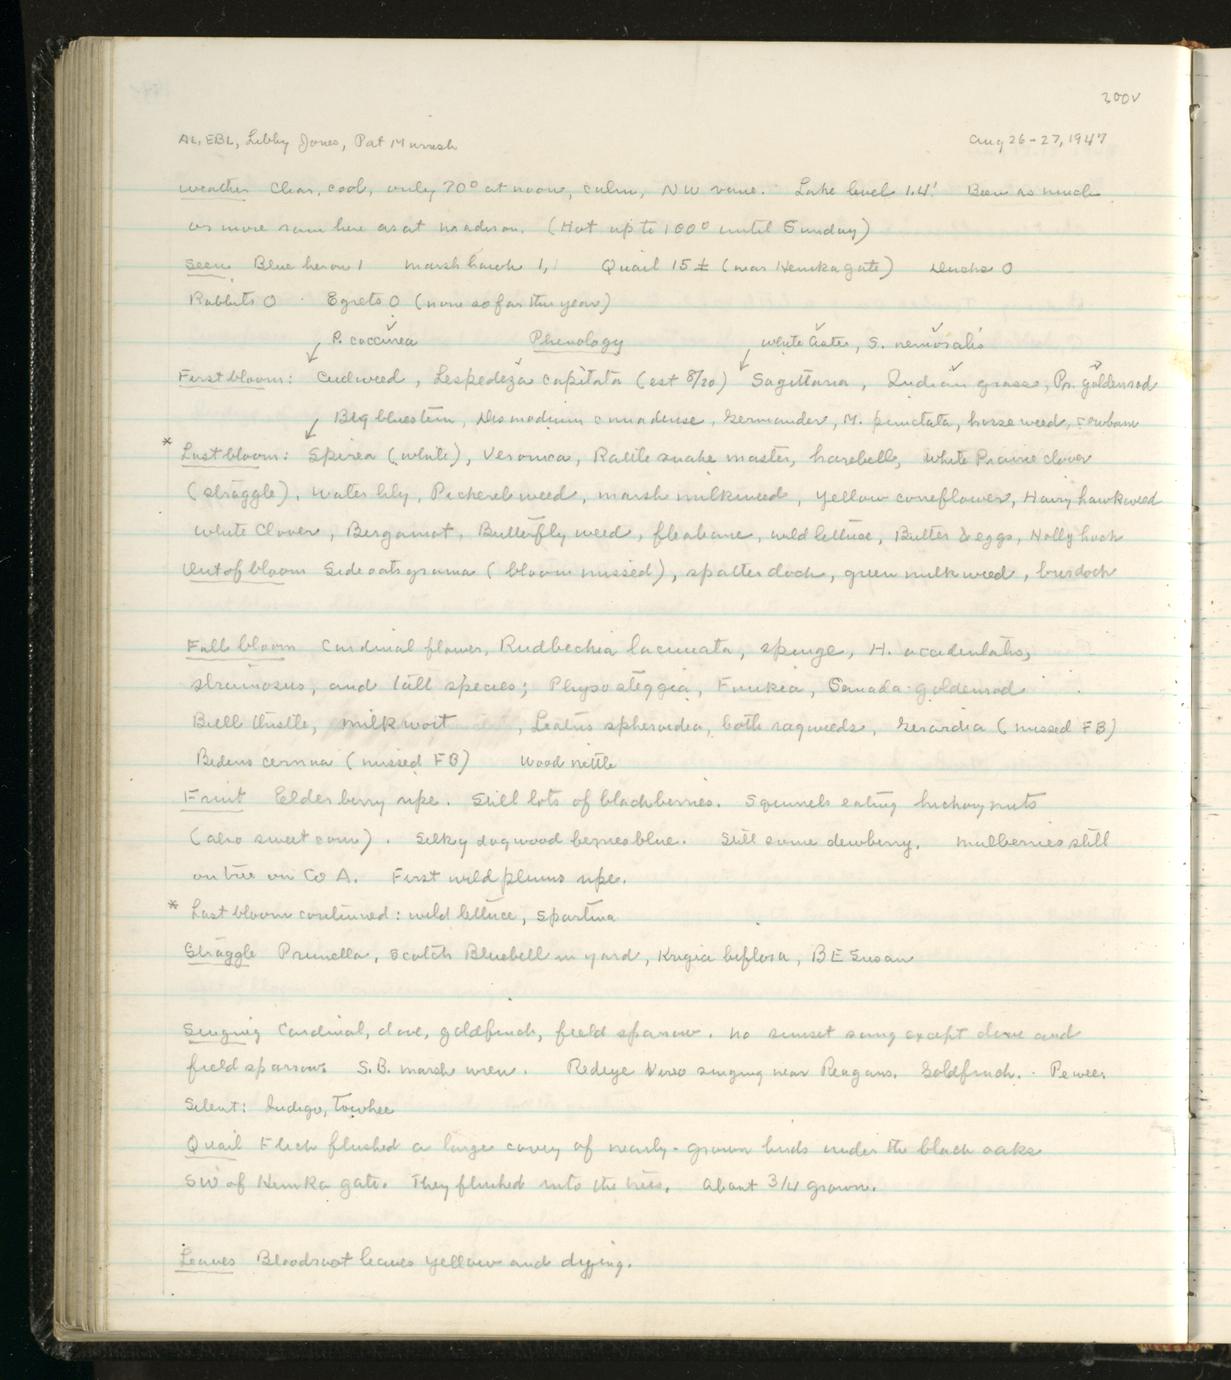 300V
AL, EBL, Libby Jones, Pat Murrish Aug 26-27, 1947
Weather Clear, cool, only 70° at noon, calm, NW vane. Lake level 1.4' Been as much
or more rain here as at Madison. (Hot up to 100° until Sunday)
Seen Blue heron 1 Marsh hawk 1, 1 Quail 15± (near Hemka gate) Ducks 0
Rabbits 0 Egrets 0 (none so far this year)
P. coccinea Phenology White Aster, S. nemoralis
First bloom: Cudweed, Lespedeza capitata (est 8/20) Sagittaria, Indian grass, Pr. goldenrod
Big bluestem, Desmodium canadense, Germander, M. punctata, horseweed, cowbane
* Last bloom: Spirea (white), Veronica, Ratite snake master, harebell, White Prairie clover
(straggle), water lily, Pickerel weed, marsh milkweed, yellow coneflower, Hairy hawkweed
White Clover, Bergamot, Butterfly weed, fleabane, wild lettuce, Butter & eggs, Hollyhock
Out of bloom Side oats grama (bloom missed), spatterdock, green milkweed, burdock
Full bloom Cardinal flower, Rudbechia laciniata, spurge, H. occidentalis,
strumosus, and tall species; Physosteggia, Funkia, Canada goldenrod
Bull thistle, milkwort, Liatris spheroidea, both ragweeds, Gerardia (missed FB)
Bidens cernua (missed FB) Wood nettle
Fruit Elderberry ripe. Still lots of blackberries. Squirrels eating hickory nuts
(also sweet corn). Silky dogwood berries blue. Still some dewberry. Mulberries still
on tree on Co A. First wild plums ripe.
* Last bloom continued: wild lettuce, Spartina
Straggle Prunella, Scotch Bluebell in yard, Krigia biflora, BE Susan
Singing Cardinal, dove, goldfinch, field sparrow. No sunset song except dove and
field sparrow. S.B. marsh wren. Redeye Vireo singing near Reagans. Goldfinch. Pewee.
Silent: Indigo, Towhee
Quail Flick flushed a large covey of nearly-grown birds under the black oaks
SW of Hemka gate. They flushed into the trees. About 3/4 grown.
Leaves Bloodroot leaves yellow and dying.